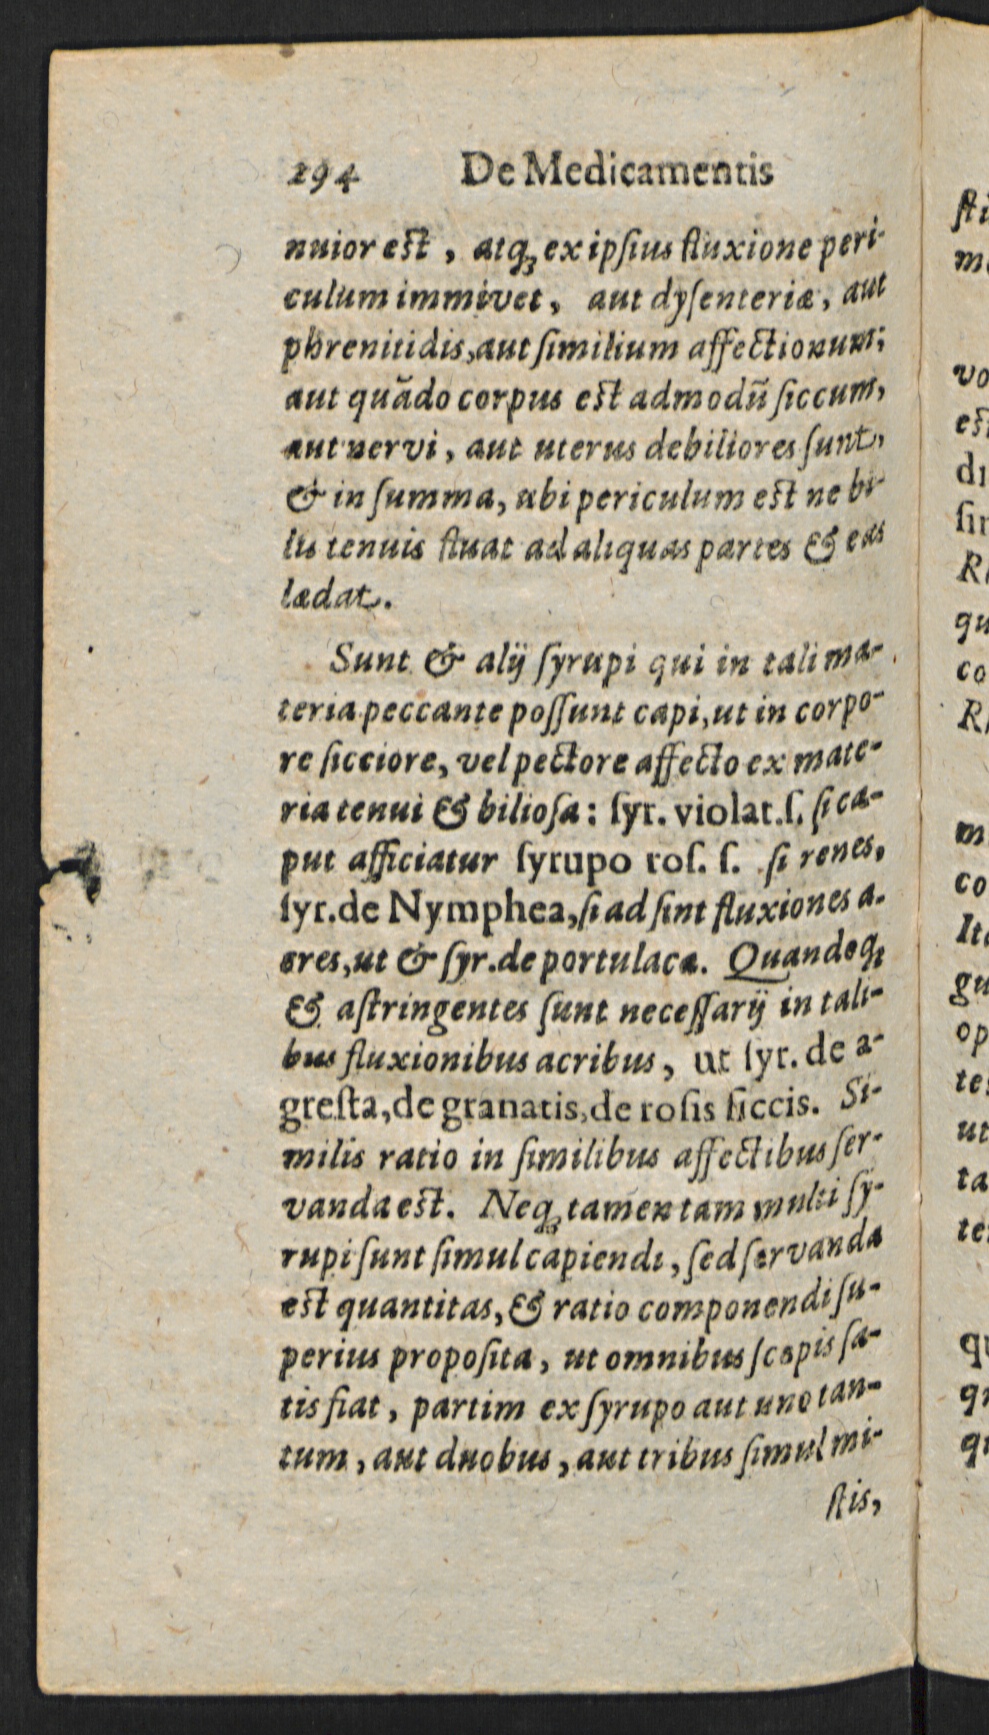 294 De Medicamentis
nuior est, atq; ex ipſius fluxione peri-
culum immivet, aut dyſenteriæ, aut
phrenitidis, aut ſimilium affectionum;
aut quādo corpus est admodū ſiccum,
aut nervi, aut uterus debiliores ſunt,
& in ſumma, ubi periculum est ne bi-
lis tenuis fluat ad aliquas partes & eas
lædat.
Sunt & alij ſyrupi qui in tali ma-
teria peccante poſſunt capi, ut in corpo-
re ſicciore, vel pectore affecto ex mate-
ria tenui & bilioſa: ſyr. violat. ſ. ſi ca-
put afficiatur ſyrupo roſ. ſ. ſi renes,
ſyr. de Nymphea, ſi ad ſint fluxiones a-
cres, ut & ſyr. de portulaca. Quandoq;
& aſtringentes ſunt neceſſarij in tali-
bus fluxionibus acribus, ut ſyr. de a-
greſta, de granatis, de roſis ſiccis. Si-
milis ratio in ſimilibus affectibus ſer-
vanda est. Neq; tamen tam multi ſy-
rupi ſunt ſimul capiendi, ſed ſervanda
est quantitas, & ratio componendi ſu-
perius propoſita, ut omnibus ſcopis ſa-
tis fiat, partim ex ſyrupo aut uno tan-
tum, aut duobus, aut tribus ſimul mi-
ſtis,